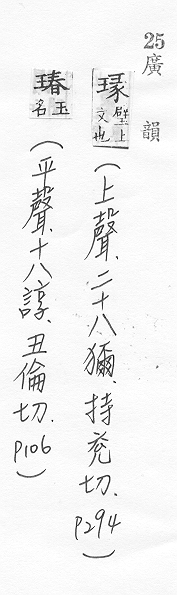 25 廣韻
瑑 璧上文也 (上聲、二十八獮、持兗切、p294)
瑃 玉名 (平聲、十八諄、丑倫切、p106)